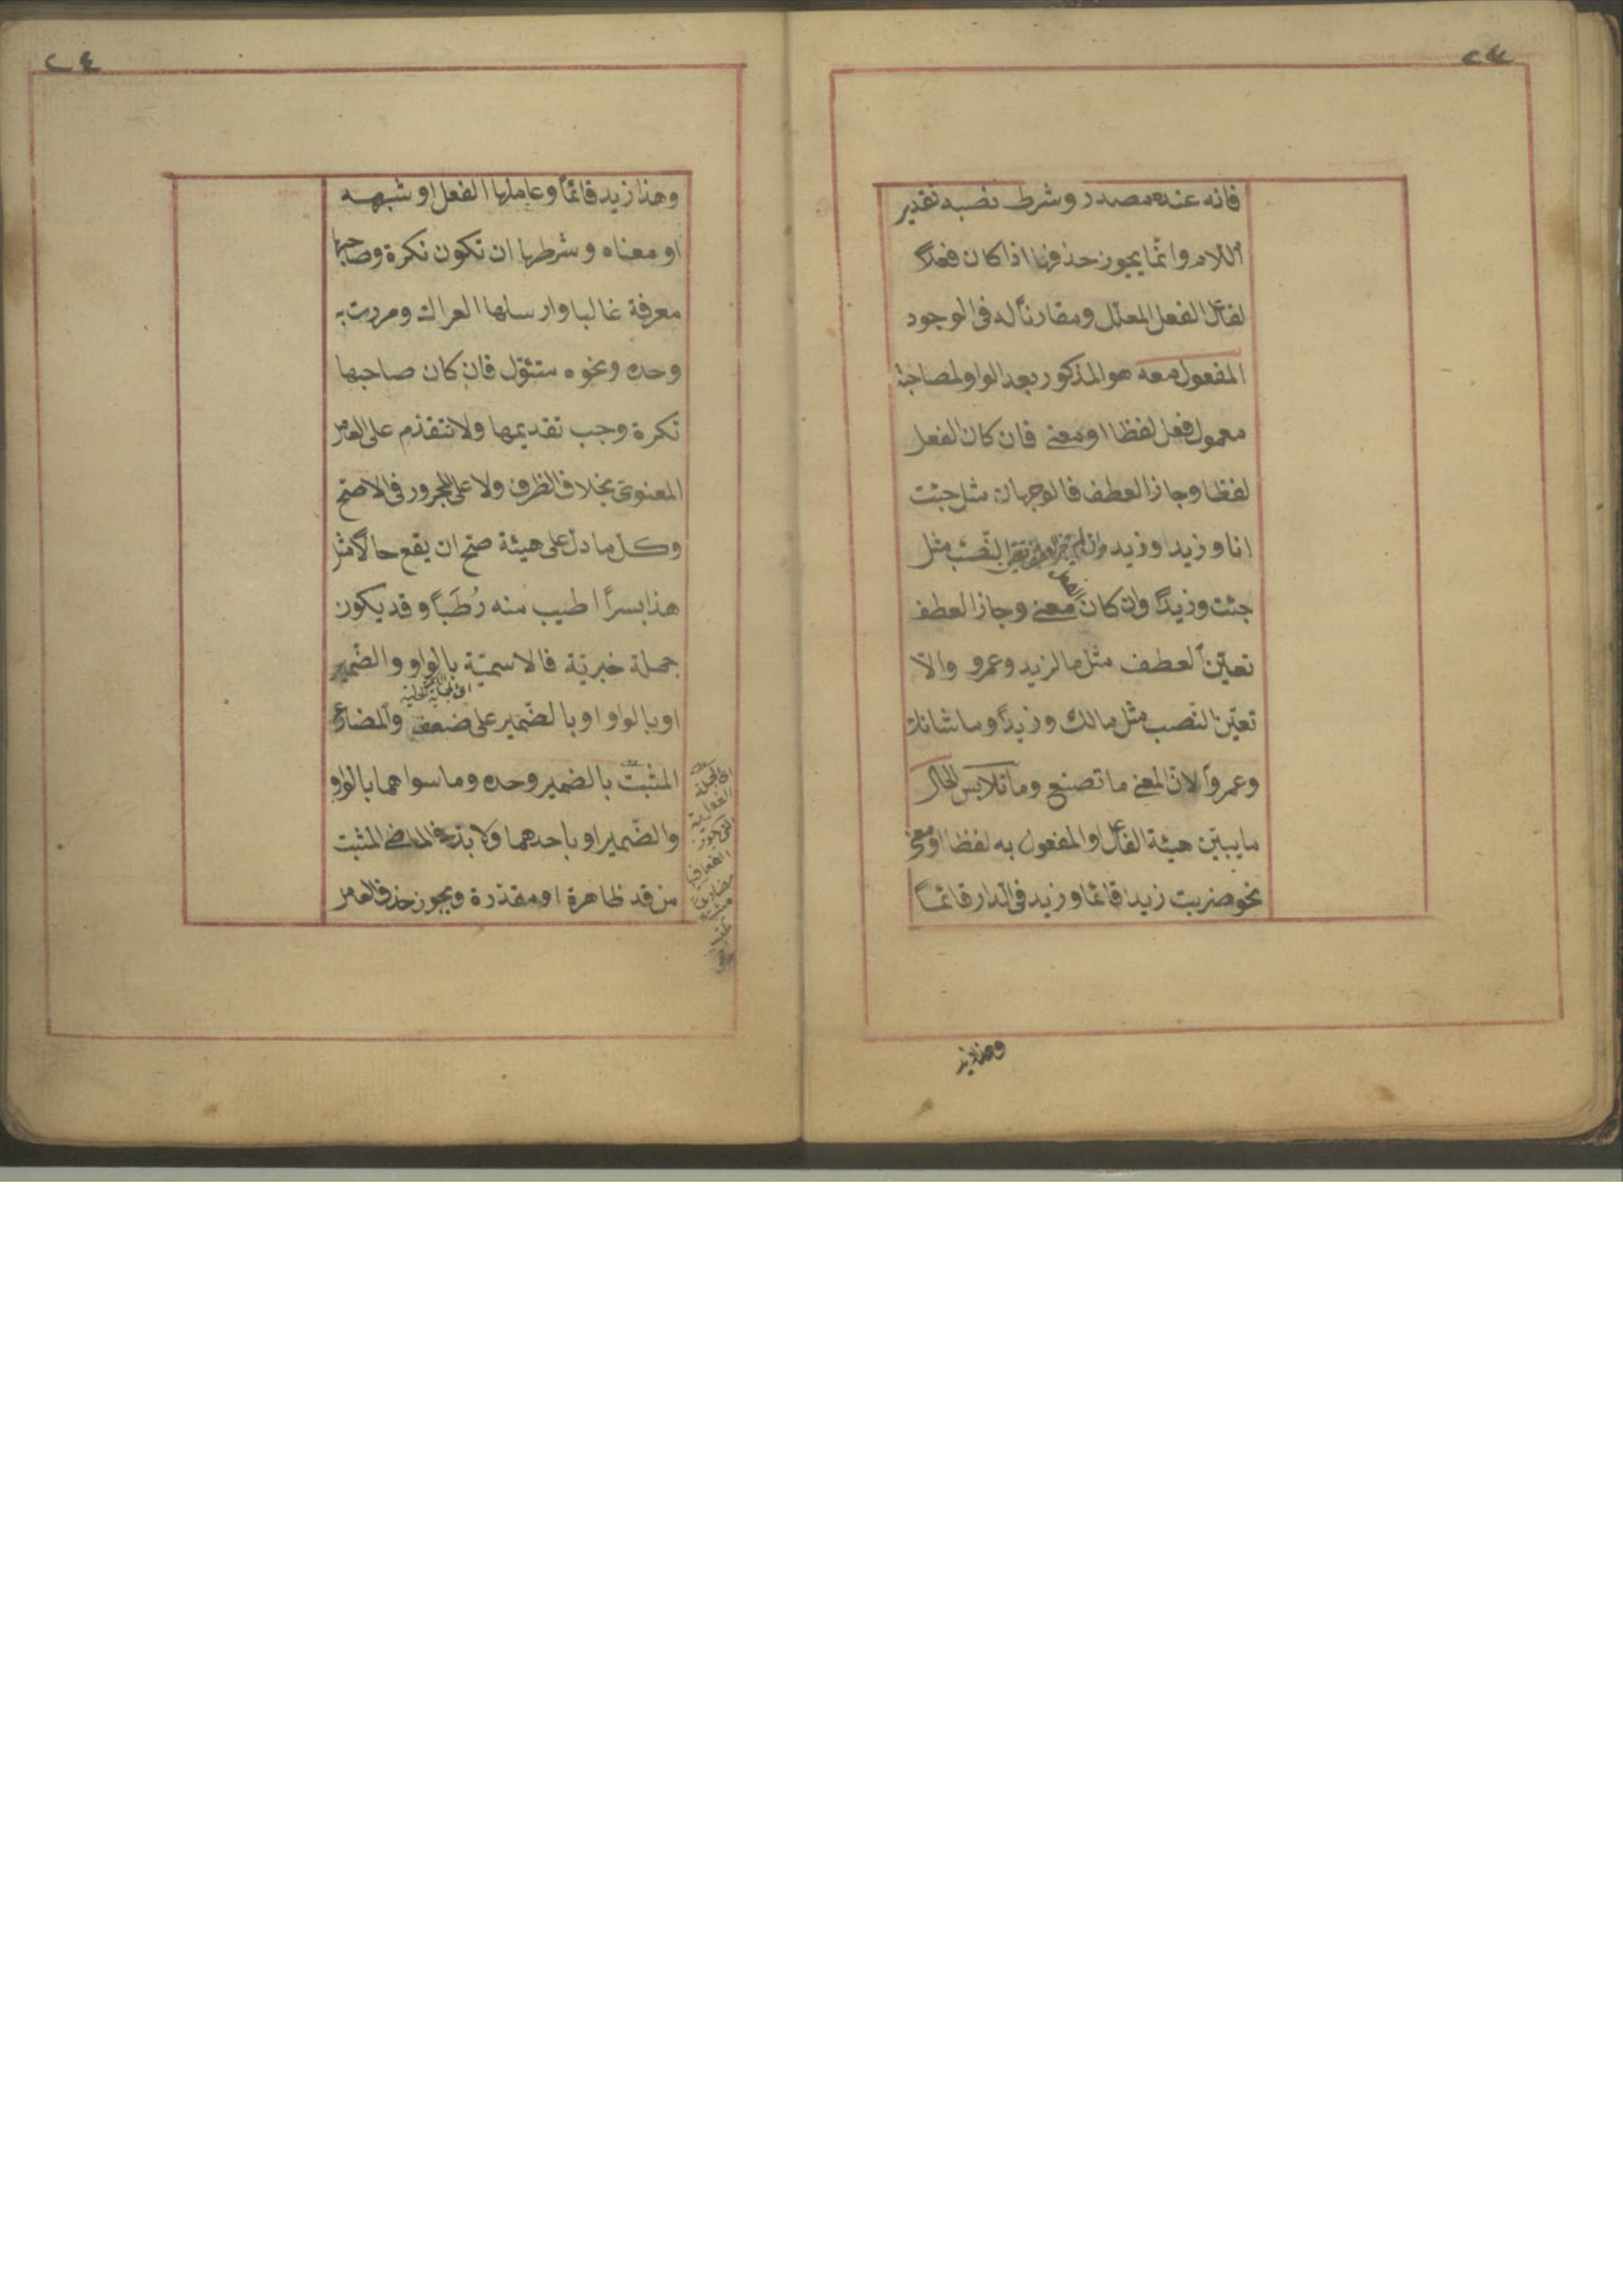 فانه عنده مصدر وشرط نصبه تقدير
اللام وانّما يجوز حذفها اذا كان فعلاً
لفاعل الفعل المعلّل ومقارناً له فى الوجود
المفعول معه هو المذكور بعد الواو لمصاحبة
معمول فعل لفظا او معنى فان كان الفعل
لفظا وجاز العطف فالوجهان مثل جئت
انا وزيدا وزيد وان لم يجز العطف تعيّن النّصب مثل
جئت وزيداً وان كان معنى وجاز العطف
تعيّن العطف مثل ما لزيد وعمرو والّا
تعيّن النّصب مثل مالك وزيداً وما شانك
وعمرواً لانّ المعنى ما تصنع وما تلابس الحال
ما يبيّن هيئة الفاعل او المفعول به لفظا او معنى
نحو ضربت زيدا قائما وزيد فى الدار قائماً
وهذا زيد
٢٤
وهذا زيد قائماً وعاملها الفعل او شبهه
او معناه وشرطها ان تكون نكرة وصاحبها
معرفة غالبا وارسلها العراك ومررت به
وحده ونحوه متئوّل فان كان صاحبها
نكرة وجب تقديمها ولا تتقدّم على العامل
المعنوىّ بخلاف الظرف ولا على المجرور فى الاصحّ
وكل ما دل على هيئة صحّ ان يقع حالاً مثل
هذا بسراً اطيب منه رُطَباً وقد يكون
جملة خبريّة فالاسميّة بالواو والضّمير
او بالواو او بالضّمير على ضعف والمضارع
المثبت بالضمير وحده وما سواهما بالواو
والضّمير او باحدهما ولا بدّ فى الماضى المثبت
من قد ظاهرة او مقدّرة ويجوز حذف العامل
اى الجملة
الفعلية